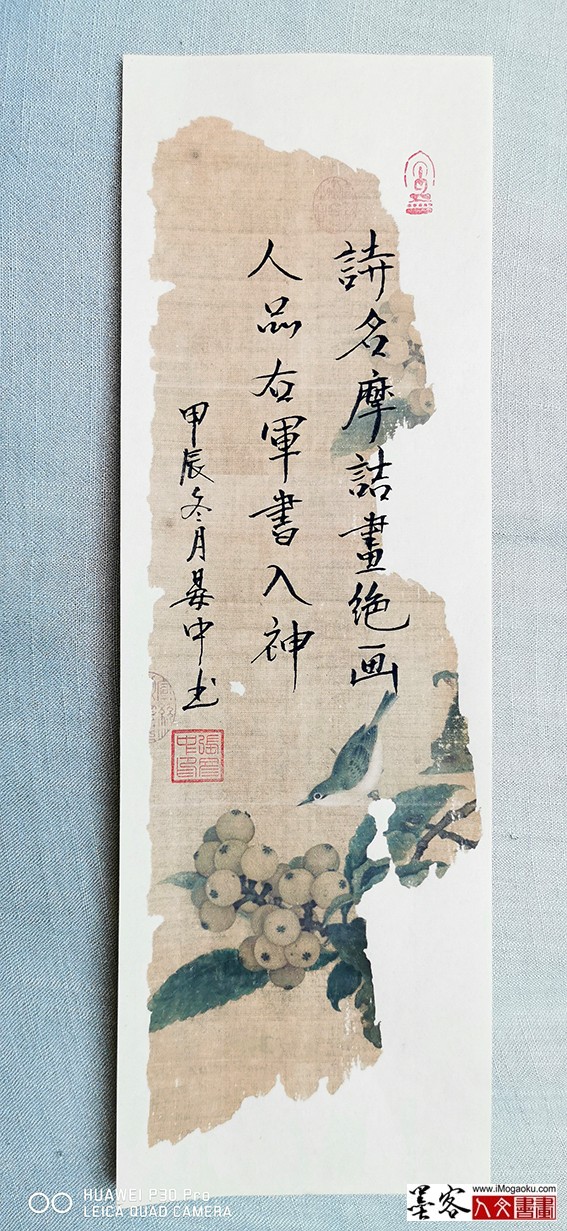 詩名摩詰畫絶画
人品右軍書入神
甲辰冬月晏中书
HUAWEI P30 Pro
LEICA QUAD CAMERA
墨客
www.iMogaoku.com
人文書畫